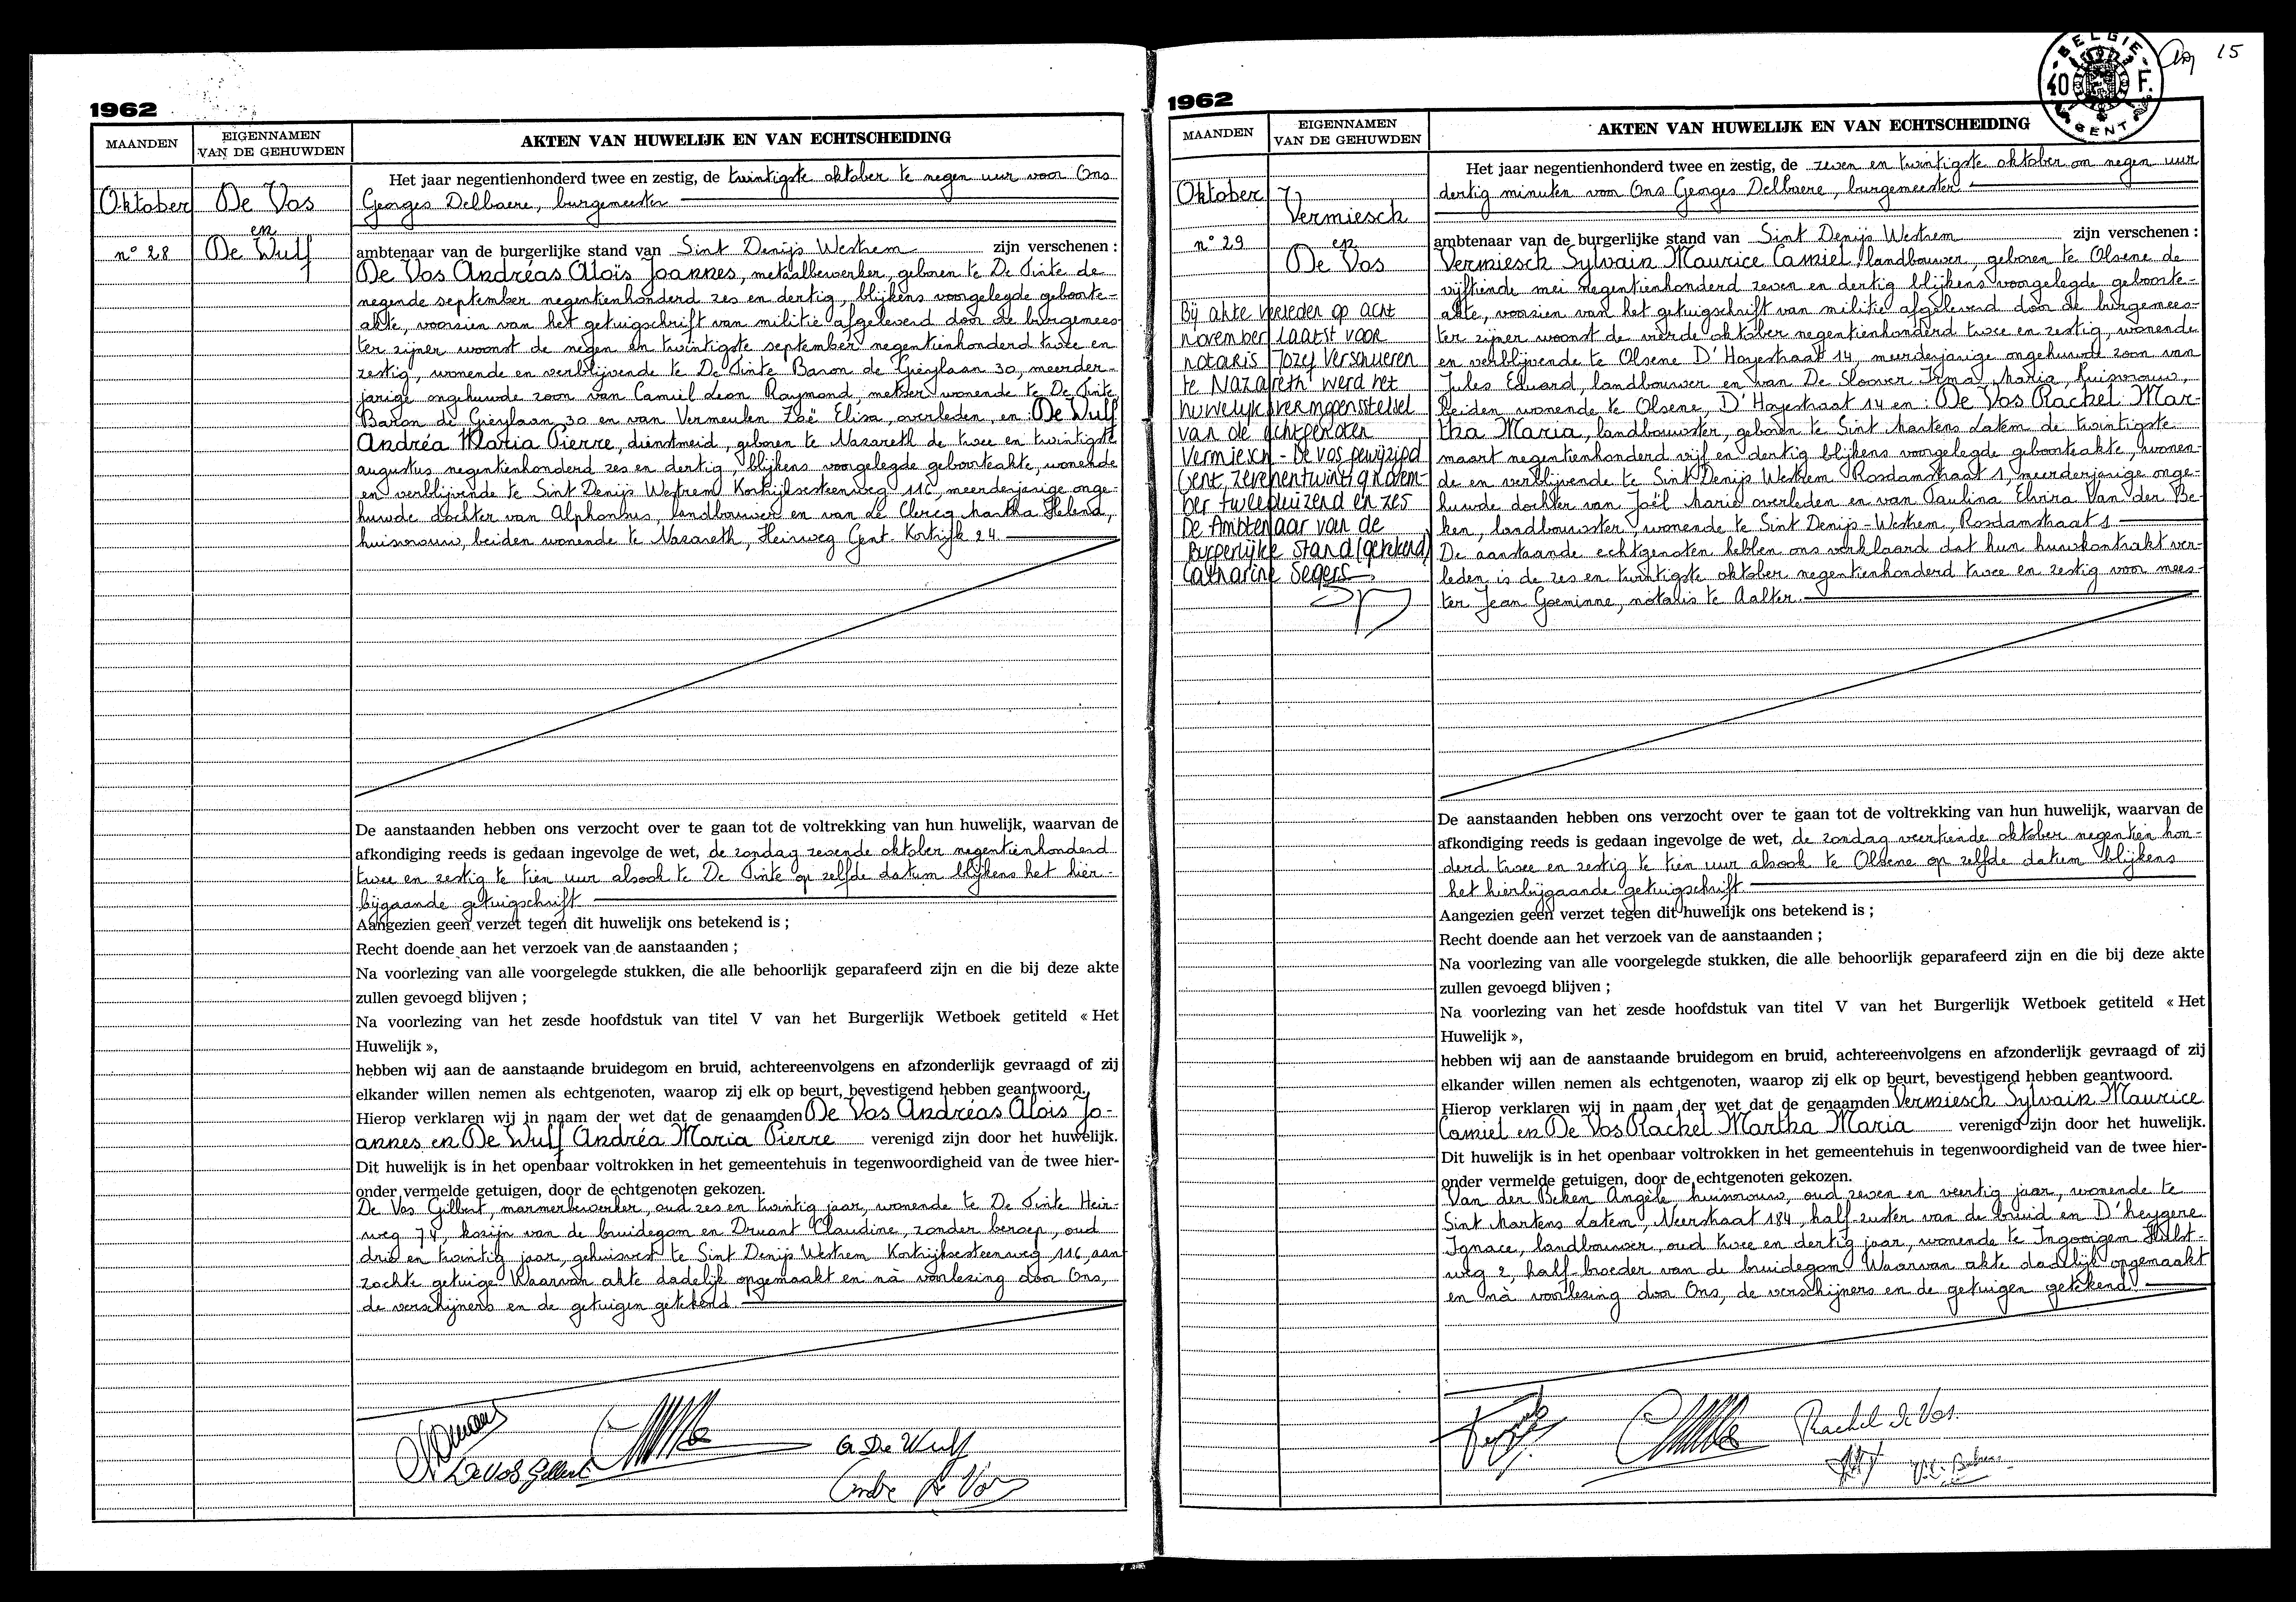 1962
MAANDEN
EIGENNAMEN
VAN DE GEHUWDEN
AKTEN VAN HUWELIJK EN VAN ECHTSCHEIDING
Oktober
n° 28
De Vos
en
De Wulf
Het jaar negentienhonderd twee en zestig, de twintigste oktober te negen uur voor Ons
Georges Delbaere, burgemeester
ambtenaar van de burgerlijke stand van Sint Denijs Westrem zijn verschenen :
De Vos Andréas Aloïs Joannes, metaalbewerker, geboren te De Pinte de
negende september negentienhonderd zes en dertig, blijkens voorgelegde geboorte-
akte, voorzien van het getuigschrift van militie afgeleverd door de burgemees
ter zijner woonst de negen en twintigste september negentienhonderd twee en
zestig, wonende en verblijvende te De Pinte Baron de Gieylaan 30, meerder-
jarige ongehuwde zoon van Camiel Leon Raymond, metser wonende te De Pinte
Baron de Gieylaan 30 en van Vermeulen Zoë Elisa, overleden, en: De Wulf
Andréa Maria Pierre, dienstmeid, geboren te Nazareth de twee en twintigste
augustus negentienhonderd zes en dertig, blijkens voorgelegde geboorteakte, wonende
en verblijvende te Sint Denijs Westrem Kortrijksesteenweg 116, meerderjarige onge-
huwde dochter van Alphonsus, landbouwer en van de Clercq Martha Helena,
huisvrouw, beiden wonende te Nazareth, Heirweg Gent-Kortrijk 24.
De aanstaanden hebben ons verzocht over te gaan tot de voltrekking van hun huwelijk, waarvan de
afkondiging reeds is gedaan ingevolge de wet, de zondag zevende oktober negentienhonderd
twee en zestig te tien uur alsook te De Pinte op zelfde datum blijkens het hier-
bijgaande getuigschrift
Aangezien geen verzet tegen dit huwelijk ons betekend is ;
Recht doende aan het verzoek van de aanstaanden ;
Na voorlezing van alle voorgelegde stukken, die alle behoorlijk geparafeerd zijn en die bij deze akte
zullen gevoegd blijven ;
Na voorlezing van het zesde hoofdstuk van titel V van het Burgerlijk Wetboek getiteld « Het
Huwelijk »,
hebben wij aan de aanstaande bruidegom en bruid, achtereenvolgens en afzonderlijk gevraagd of zij
elkander willen nemen als echtgenoten, waarop zij elk op beurt, bevestigend hebben geantwoord.
Hierop verklaren wij in naam der wet dat de genaamden De Vos Andréas Aloïs Jo-
annes en De Wulf Andréa Maria Pierre verenigd zijn door het huwelijk.
Dit huwelijk is in het openbaar voltrokken in het gemeentehuis in tegenwoordigheid van de twee hier-
onder vermelde getuigen, door de echtgenoten gekozen.
De Vos Gilbert, marmerbewerker, oud zes en twintig jaar, wonende te De Pinte Heir-
weg 74, kozijn van de bruidegom en Druant Claudine, zonder beroep, oud
drie en twintig jaar, gehuisvest te Sint Denijs Westrem Kortrijksesteenweg 116, aan
zochte getuige Waarvan akte dadelijk opgemaakt en nà voorlezing door Ons,
de verschijners en de getuigen getekend.
De Vos Gilbert
A De Wulf
Andre De Vos
15
BELGIE
40 F.
GENT
1962
MAANDEN
EIGENNAMEN
VAN DE GEHUWDEN
AKTEN VAN HUWELIJK EN VAN ECHTSCHEIDING
Oktober
n° 29
Vermiesch
en
De Vos
Bij akte verleden op acht
november laatst voor
notaris Jozef Versaueren
te Nazareth werd het
huwelijksvermogensstelsel
van de echtgenoten
Vermiesch - De Vos gewijzigd
Gent, zevenentwintig novem-
ber tweeduizend en zes
De Ambtenaar van de
Burgerlijke Stand (getekend)
Catharina Segers
Het jaar negentienhonderd twee en zestig, de zeven en twintigste oktober om negen uur
dertig minuten voor Ons Georges Delbaere, burgemeester
ambtenaar van de burgerlijke stand van Sint Denijs Westrem zijn verschenen :
Vermiesch Sylvain Maurice Camiel, landbouwer, geboren te Olsene de
vijftiende mei negentienhonderd zeven en dertig blijkens voorgelegde geboorte-
akte, voorzien van het getuigschrift van militie afgeleverd door de burgemees-
ter zijner woonst de vierde oktober negentienhonderd twee en zestig, wonende
en verblijvende te Olsene D'Hoyestraat 14, meerderjarige ongehuwde zoon van
Jules Eduard, landbouwer en van De Sloover Irma Maria, huisvrouw,
beiden wonende te Olsene, D'Hoyestraat 14 en: De Vos Rachel Mar-
tha Maria, landbouwster, geboren te Sint Martens Latem de twintigste
maart negentienhonderd vijf en dertig blijkens voorgelegde geboorteakte, wonen-
de en verblijvende te Sint Denijs Westrem Rosdamstraat 1, meerderjarige onge-
huwde dochter van Joël Marie overleden en van Paulina Elvira Van der Be-
ken, landbouwster, wonende te Sint Denijs-Westrem, Rosdamstraat 1
De aanstaande echtgenoten hebben ons verklaard dat hun huwkontrakt ver-
leden is de zes en twintigste oktober negentienhonderd twee en zestig voor mees-
ter Jean Goeminne, notaris te Aalter.
De aanstaanden hebben ons verzocht over te gaan tot de voltrekking van hun huwelijk, waarvan de
afkondiging reeds is gedaan ingevolge de wet, de zondag veertiende oktober negentien hon-
derd twee en zestig te tien uur alsook te Olsene op zelfde datum blijkens
het hierbijgaande getuigschrift
Aangezien geen verzet tegen dit huwelijk ons betekend is ;
Recht doende aan het verzoek van de aanstaanden ;
Na voorlezing van alle voorgelegde stukken, die alle behoorlijk geparafeerd zijn en die bij deze akte
zullen gevoegd blijven ;
Na voorlezing van het zesde hoofdstuk van titel V van het Burgerlijk Wetboek getiteld « Het
Huwelijk »,
hebben wij aan de aanstaande bruidegom en bruid, achtereenvolgens en afzonderlijk gevraagd of zij
elkander willen nemen als echtgenoten, waarop zij elk op beurt, bevestigend hebben geantwoord.
Hierop verklaren wij in naam der wet dat de genaamden Vermiesch Sylvain Maurice
Camiel en De Vos Rachel Martha Maria verenigd zijn door het huwelijk.
Dit huwelijk is in het openbaar voltrokken in het gemeentehuis in tegenwoordigheid van de twee hier-
onder vermelde getuigen, door de echtgenoten gekozen.
Van der Beken Angèle huisvrouw, oud zeven en veertig jaar, wonende te
Sint Martens Latem, Meerstraat 184, half-zuster van de bruid en D'heygere
Ignace, landbouwer, oud twee en dertig jaar, wonende te Ingooigem
weg 2, half-broeder van de bruidegom Waarvan akte dadelijk opgemaakt
en nà voorlezing door Ons, de verschijners en de getuigen getekend.
Rachel De Vos.